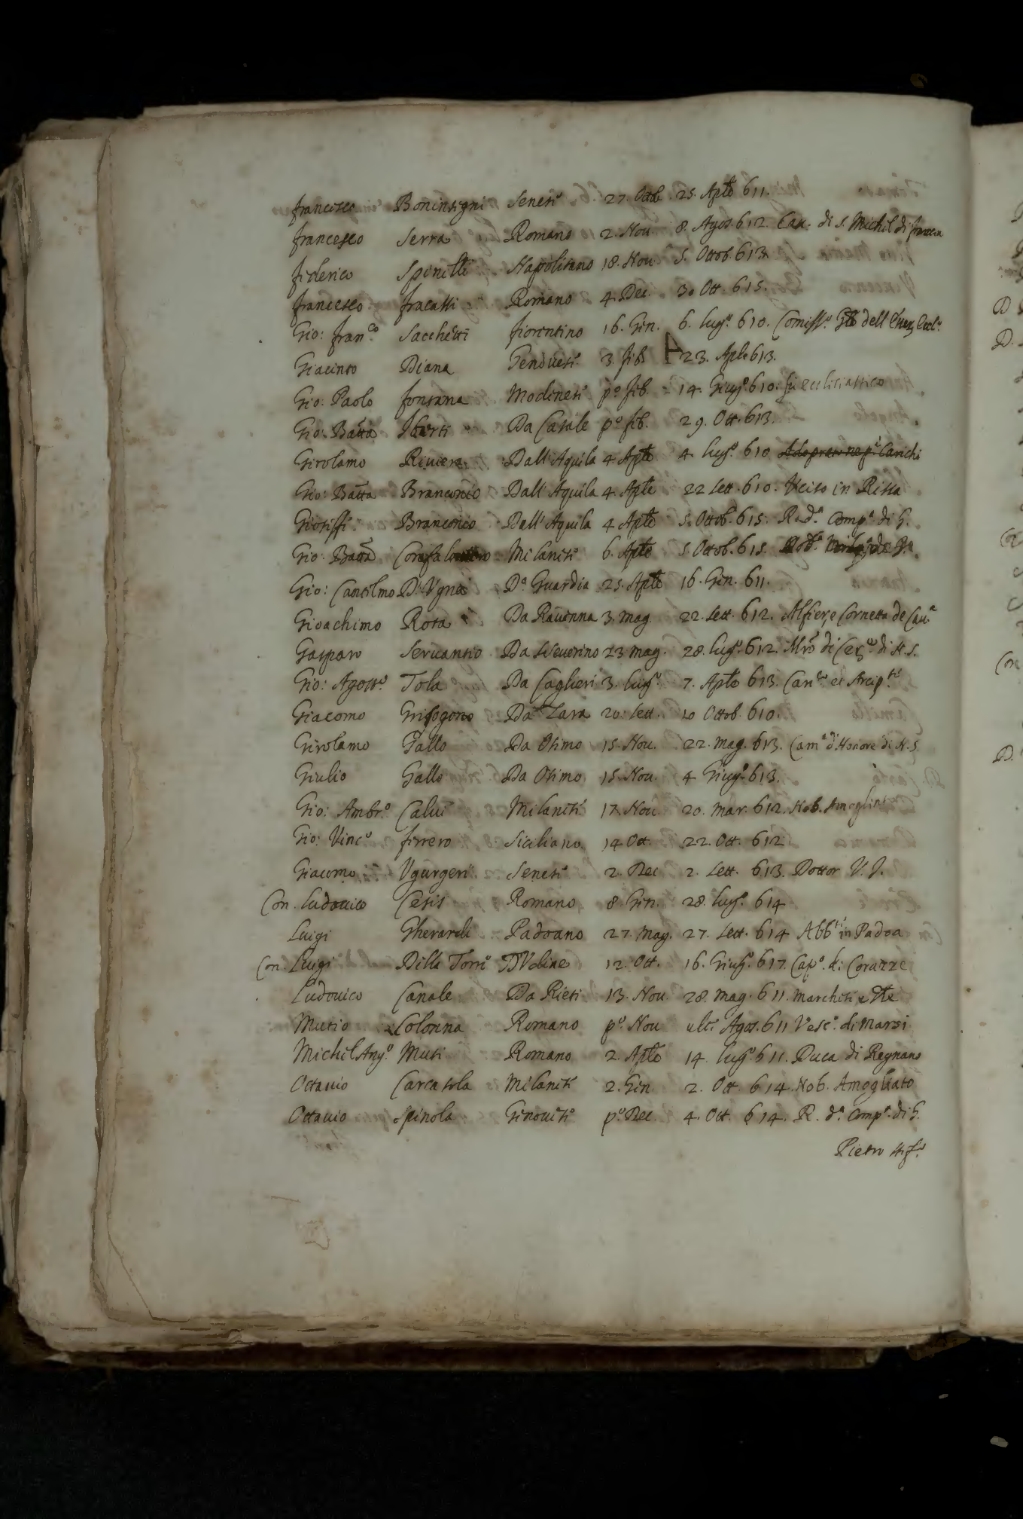 francesco Boninsegni Senese 27. Ottob. 25. Aple 611.
francesco Serra Romano 2. Nou 8. Agos. 612. Cau. di S. Michel di francia
federico Spinelli Napolitano 18. Nou 5. Ottob. 613.
francesco fracassi Romano 4. Dec 30 Ott. 615.
Gio: fran.co Sacchetti fiorentino 16. Gen. 6. lug.o 610. Comiss.o Gle dell'
Giacinto Diana Genouese 3 feb 23. Aple 613.
Gio: Paolo fontana Modenese p.o feb. 14. Giug.o 610. fu ecclesiastico
Gio: Batta Iberti Da Casale p.o feb. 29. Ott. 613.
Girolamo Riuera Dall'Aquila 4. Aple 4. lug.o 610 Carichi
Gio: Batta Branconio Dall'Aquila 4. Aple 22 Sett. 610. Vciso in Rissa
Gioseffe Branconio Dell'Aquila 4. Aple 5. Ottob. 615. R. d.a Comp.a di G.
Gio: Batta Confaloniero Milanese 6. Aple 5. Ottob. 615.
Gio: Cantelmo D'Ugnos D.a Guardia 25. Aple 16. Gen. 611.
Gioachimo Rota Da Rauenna 3. mag. 22. Sett. 612. Alfiere Cornetta de Cau.a
Gasparo Seruantio Da Seuerino 23 mag. 28. lug.o 612. Mro di Cer.e di N. S.
Gio: Agost.o Tola Da Caglieri 3. lug.o 7. Aple 613. Can.co et Arcip.te
Giacomo Grisogono Da Zara 20. Sett. 10 Ottob 610.
Girolamo Gallo Da Osimo 15. Nou. 22. mag. 613. Cam.e d'Honore di N. S.
Giulio Gallo Da Osimo 15. Nou 4. Giug.o 613.
Gio: Ambr.o Calui Milanese 17. Nou 20. mar. 612. Nob. Amogliato
Gio: Vinc.o ferrero Siciliano 14 Ott. 22. Ott. 612
Giacomo Vgurgeri Senese 2. Dec 2. Sett. 613. Dottor V. J.
Con. Ludouico Cesis Romano 8 Gen. 28. lug.o 614
Luigi Gherardi Padoano 27. mag. 27. Sett. 614 Abb.e in Padoa
Con. Luigi Della Torre D'Vdine 12. Ott. 16. Giug.o 617. Cap.o di Corazze
Ludouico Canale Da Rieti 13. Nou 28. mag. 611. marchese
Mutio Colonna Romano p.o Nou ult.o Agos. 611 Vesc.o di Marsi
Michel Ang.o Muti Romano 2. Aple 14. lug.o 611. Duca di Regnano
Ottauio Carcasola Milanese 2. Gen 2. Ott. 614. Nob. Amogliato
Ottauio Spinola Genouese p.o Dec. 4. Ott. 614. R. d.a Comp.a di G.
Pietro